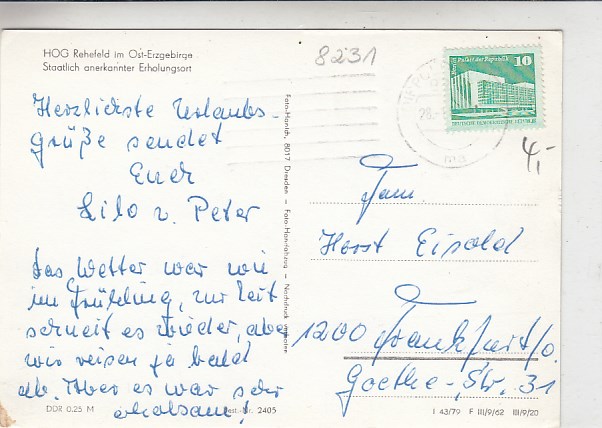 HOG Rehefeld im Ost-Erzgebirge
Staatlich anerkannter Erholungsort
8231
Herzlichste Urlaubs-
grüße sendet
Euch
Lilo u. Peter
Das Wetter war wie
im Frühling, zur Zeit
schneit es wieder, aber
wir reisen ja bald
ab. Aber es war sehr
erholsam!
DDR 0,25 M
Best.-Nr. 2405
Foto-Hanich, 8017 Dresden — Foto-Handabzug — Nachdruck verboten
Berlin Palast der Republik
10
DEUTSCHE DEMOKRATISCHE REPUBLIK
4,-
Fam.
Horst Eisold
1200 Frankfurt/O.
Goethe-Str. 31
I 43/79 F III/9/62 III/9/20